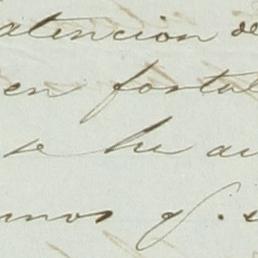 atencion de
en fortal
se he au
mos q.